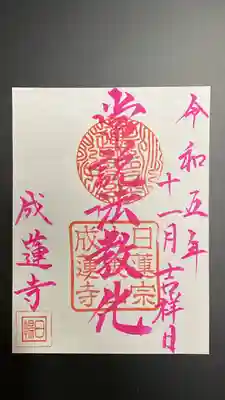 令和五年
十一月吉祥日
常説法教化
日蓮宗
成蓮寺
成蓮寺